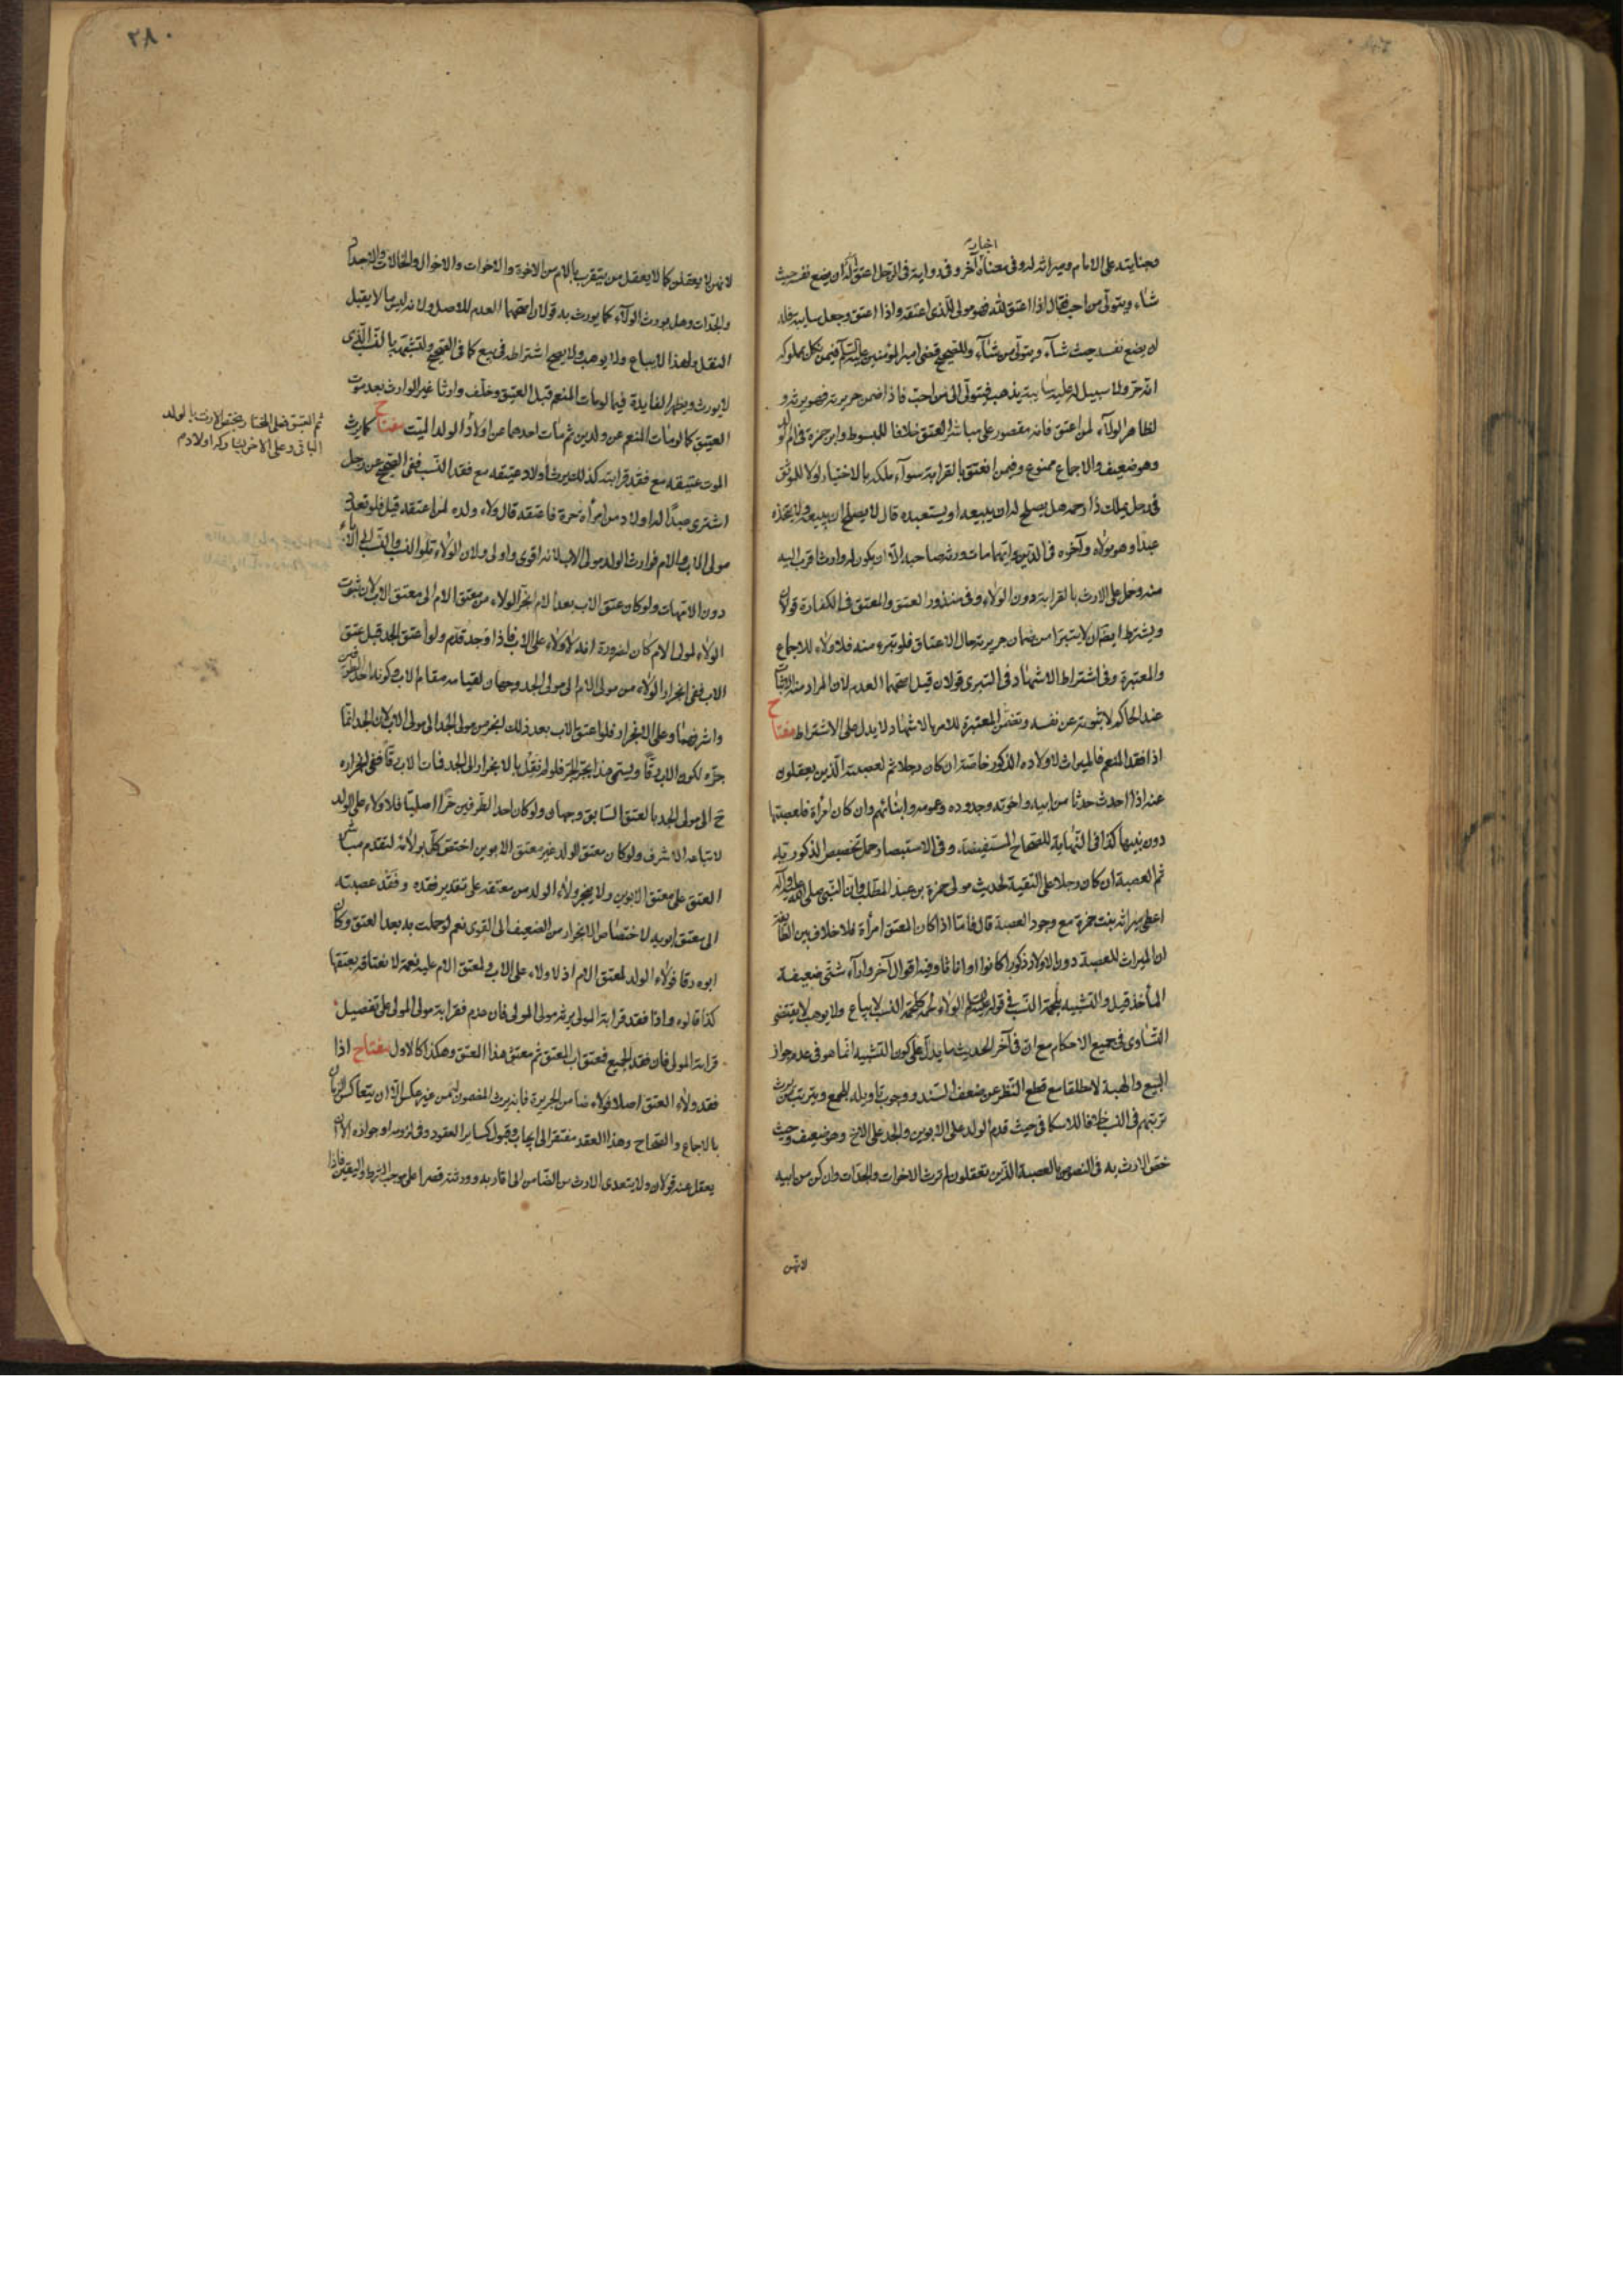 اخبار
وجنايته على الامام وميراثه له وفى معناه آخر وفى رواية فى الرجل اعتق أله ان يضع نفسه حيث
شاء ويتولى من احب فقال اذا اعتق لله فهو مولى للذى اعتقه واذا اعتق وجعل سايبة فله
ان يضع نفسه حيث شاء ويتولى من شاء وللصحيح قضى امير المؤمنين عليه السلم فيمن نكل بمملوكه
انه حر ولا سبيل له عليه سايبة يذهب فيتولى الى من احب فاذا ضمن جريرته فهو يرثه و
لظاهر الولاء لمن اعتق فانه مقصور على مباشر العتق خلافا للمبسوط وابن حمزة فى ام
وهو ضعيف والاجماع ممنوع وفيمن انعتق بالقرابة سوآء ملكه بالاختيار اولا للموثق
فى رجل يملك ذا رحمه هل يصلح له ان يبيعه او يستعبده قال لا يصلح ان يبيعه ولا يتخذه
عبدا وهو مولاه وآخوه فى الدين وايهما مات ورثه صاحبه الا ان يكون له وارث اقرب اليه
منه وحمل على الارث بالقرابة دون الولاء وفى منذور العتق والمعتق فى الكفارة قولان
ويشترط ايضا ان لا يتبرا من ضمان جريرته حال الاعتاق فلو تبرء منه فلا ولاء للاجماع
والمعتبرة وفى اشتراط الاشهاد فى التبرى قولان قيل اصحهما العدم لان المراد منه الاثبات
عند الحاكم لا ثبوته عن نفسه وتضمن المعتبرة للامر بالاشهاد لا يدل على الاشتراط مفتاح
اذا فقد المنعم فالميراث لاولاده الذكور خاصة ان كان رجلا ثم لعصبته الذين يعقلون
عنه اذا احدث حدثا من ابيه واخوته وجدوده وعمومه وابنائهم وان كان امرأة فلعصبتها
دون بنيها كذا فى النهاية للصحاح المستفيضة وفى الاستبصار حمل تخصيص الذكور به
ثم العصبة ان كان رجلا على التقية لحديث مولى حمزة بن عبد المطلب وان النبى صلى الله عليه وآله
اعطى ميراثه بنت حمزة مع وجود العصبة قال فاما اذا كان المعتق امرأة فلا خلاف بين الطائفة
ان الميراث للعصبة دون الاولاد ذكورا كانوا او اناثا وفيه اقوال آخر وارآء شتى ضعيفة
المأخذ قيل والتشبيه بلحمة النسب فى قوله عليه السلم الولاء لحمة كلحمة النسب لا يباع ولا يوهب لا يقتضى
التساوى فى جميع الاحكام مع ان فى آخر الحديث ما يدل على كون التشبيه انما هو فى عدم جواز
البيع والهبة لا مطلقا مع قطع النظر عن ضعف السند ووجوب تاويله للجمع ويترتب من يرث
ترتبهم فى النسب خلافا للاسكافى حيث قدم الولد على الابوين والجد على الاخ وهو ضعيف وحيث
خص الارث به فى النصوص بالعصبة الذين يعقلون لم ترث الاخوات والجدات وان كن من ابيه
لانهن
٢٨٠
لانهن لا يعقلن كما لا يعقل من يتقرب بالام من الاخوة والاخوات والاخوال والخالات والاجداد
والجدات وهل يورث الولاء كما يورث به قولان اصحهما العدم للاصل ولانه ليس مما لا يقبل
النقل ولهذا لا يباع ولا يوهب ولا يصح اشتراطه فى بيع كما فى الصحيح ولتشبهه بالنسب الذى
لا يورث ويظهر الفايدة فيما لو مات المنعم قبل العتيق وخلف وارثا غير الوارث بعد موت
العتيق كما لو مات المنعم عن ولدين ثم مات احدهما عن اولاد ثم الولد الميت مفتاح كما يرث
الموت عتيقه مع فقد قرابته كذلك يرث اولاد عتيقه مع فقد النسب ففى الصحيح عن رجل
اشترى عبدا له اولاد من امرأة حرة فاعتقه قال ولاء ولده لمن اعتقه قيل فلو تعدد
مولى الاب والام فوارث الولد مولى الاب لانه اقوى واولى ولان الولاء تلو النسب والنسب الى الآباء
دون الامهات ولو كان عتق الاب بعد الام انجر الولاء من معتق الام الى معتق الاب لان ثبوت
الولاء لمولى الام كان لضرورة انه لا ولاء على الاب فاذا وجد قدم ولو اعتق الجد قبل عتق
الاب ففى انجرار الولاء من مولى الام الى مولى الجد وجهان لقيامه مقام الاب وكونه احد الطرفين
واشرفهما وعلى الانجرار فلو اعتق الاب بعد ذلك انجر من مولى الجد الى مولى الاب لان الجد انما
جره لكون الاب رقا ويسمى هذا بجر الجر فلو لم نقل بالانجرار الى الجد فمات الاب رقا ففى انجراره
ح الى مولى الجد بالعتق السابق وجهان ولو كان احد الطرفين حرا اصليا فلا ولاء على الولد
لاتباعه الاشرف ولو كان معتق الولد غير معتق الابوين اختص كل بولائه لتقدم مباشر
العتق على معتق الابوين ولا ينجر ولاء الولد من معتقه على تقدير فقده وفقد عصبته
الى معتق ابويه لاختصاص الانجرار من الضعيف الى القوى نعم لو حملت به بعد العتق وكان
ابوه رقا فولاء الولد لمعتق الام اذ لا ولاء على الاب ولمعتق الام عليه نعمة لانعتاقه بعتقها
كذا قالوه واذا فقد قرابة المولى يرثه مولى المولى فان عدم فقرابة مولى المولى على تفصيل
قرابة المولى فان فقد الجميع فمعتق اب المعتق ثم معتق هذا المعتق وهكذا كالاول مفتاح اذا
فقد ولاء العتق اصلا فولاء ضامن الجريرة فانه يرث المضمون ثمن من غير عكس الا ان يتعاكس الضمان
بالاجماع والصحاح وهذا العقد مفتقر الى ايجاب وقبول كساير العقود وفى لزومه او جوازه الا ان
يعقل عنه قولان ولا يتعدى الارث من الضامن الى اقاربه وورثته قصرا على موجب الشرط واليقين فاذا
ثم العتيق فعلى المختار يختص الارث بالولد
الباقى وعلى الاخر بينه وبين اولادم